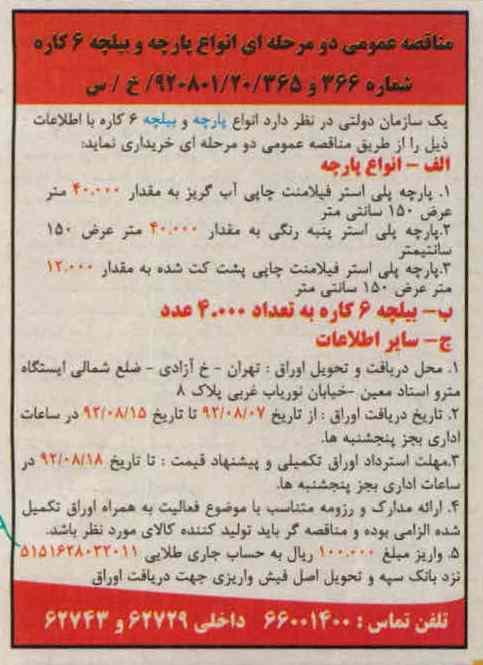 مناقصه عمومی دو مرحله ای انواع پارچه و بیلچه ۶ کاره
شماره ۳۶۶ و ۹۲۰۸۰۱/۲۰/۳۶۵/ خ / س
یک سازمان دولتی در نظر دارد انواع پارچه و بیلچه ۶ کاره با اطلاعات
ذیل را از طریق مناقصه عمومی دو مرحله ای خریداری نماید:
الف - انواع پارچه
۱. پارچه پلی استر فیلامنت چاپی آب گریز به مقدار ۴۰،۰۰۰ متر
عرض ۱۵۰ سانتی متر
۲.پارچه پلی استر پنبه رنگی به مقدار ۴۰،۰۰۰ متر عرض ۱۵۰
سانتیمتر
۳.پارچه پلی استر فیلامنت چاپی پشت کت شده به مقدار ۱۲،۰۰۰
متر عرض ۱۵۰ سانتی متر
ب- بیلچه ۶ کاره به تعداد ۴،۰۰۰ عدد
ج- سایر اطلاعات
۱. محل دریافت و تحویل اوراق : تهران - خ آزادی - ضلع شمالی ایستگاه
مترو استاد معین -خیابان نوریاب غربی پلاک ۸
۲. تاریخ دریافت اوراق : از تاریخ ۹۲/۰۸/۰۷ تا تاریخ ۹۲/۰۸/۱۵ در ساعات
اداری بجز پنجشنبه ها.
۳.مهلت استرداد اوراق تکمیلی و پیشنهاد قیمت : تا تاریخ ۹۲/۰۸/۱۸ در
ساعات اداری بجز پنجشنبه ها.
۴. ارائه مدارک و رزومه متناسب با موضوع فعالیت به همراه اوراق تکمیل
شده الزامی بوده و مناقصه گر باید تولید کننده کالای مورد نظر باشد.
۵. واریز مبلغ ۱۰۰،۰۰۰ ریال به حساب جاری طلایی ۵۱۵۱۶۲۸۰۳۲۰۱۱
نزد بانک سپه و تحویل اصل فیش واریزی جهت دریافت اوراق
تلفن تماس : ۶۶۰۰۱۴۰۰ داخلی ۶۲۷۲۹ و ۶۲۷۴۳